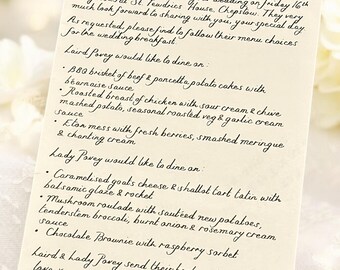 wedding on friday 16th
at St. Tewdrics House, Chepstow. They very
much look forward to sharing with you, your special day
As requested, please find to follow their menu choices
for the wedding breakfast
Laird Povey would like to dine on:
• BBQ brisket of beef & pancetta potato cakes with
bearnaise sauce
• Roasted breast of chicken with sour cream & chive
mashed potato, seasonal roasted veg & garlic cream
sauce
• Eton mess with fresh berries, smashed meringue
& chanting cream
Lady Povey would like to dine on:
• Caramelised goats cheese & shallot tart Latin with
balsamic glaze & rocket
• Mushroom roulade with sautéed new potatoes,
tenderstem broccoli, burnt onion & rosemary cream
sauce
• Chocolate Brownie with raspberry sorbet
Laird & Lady Povey send their